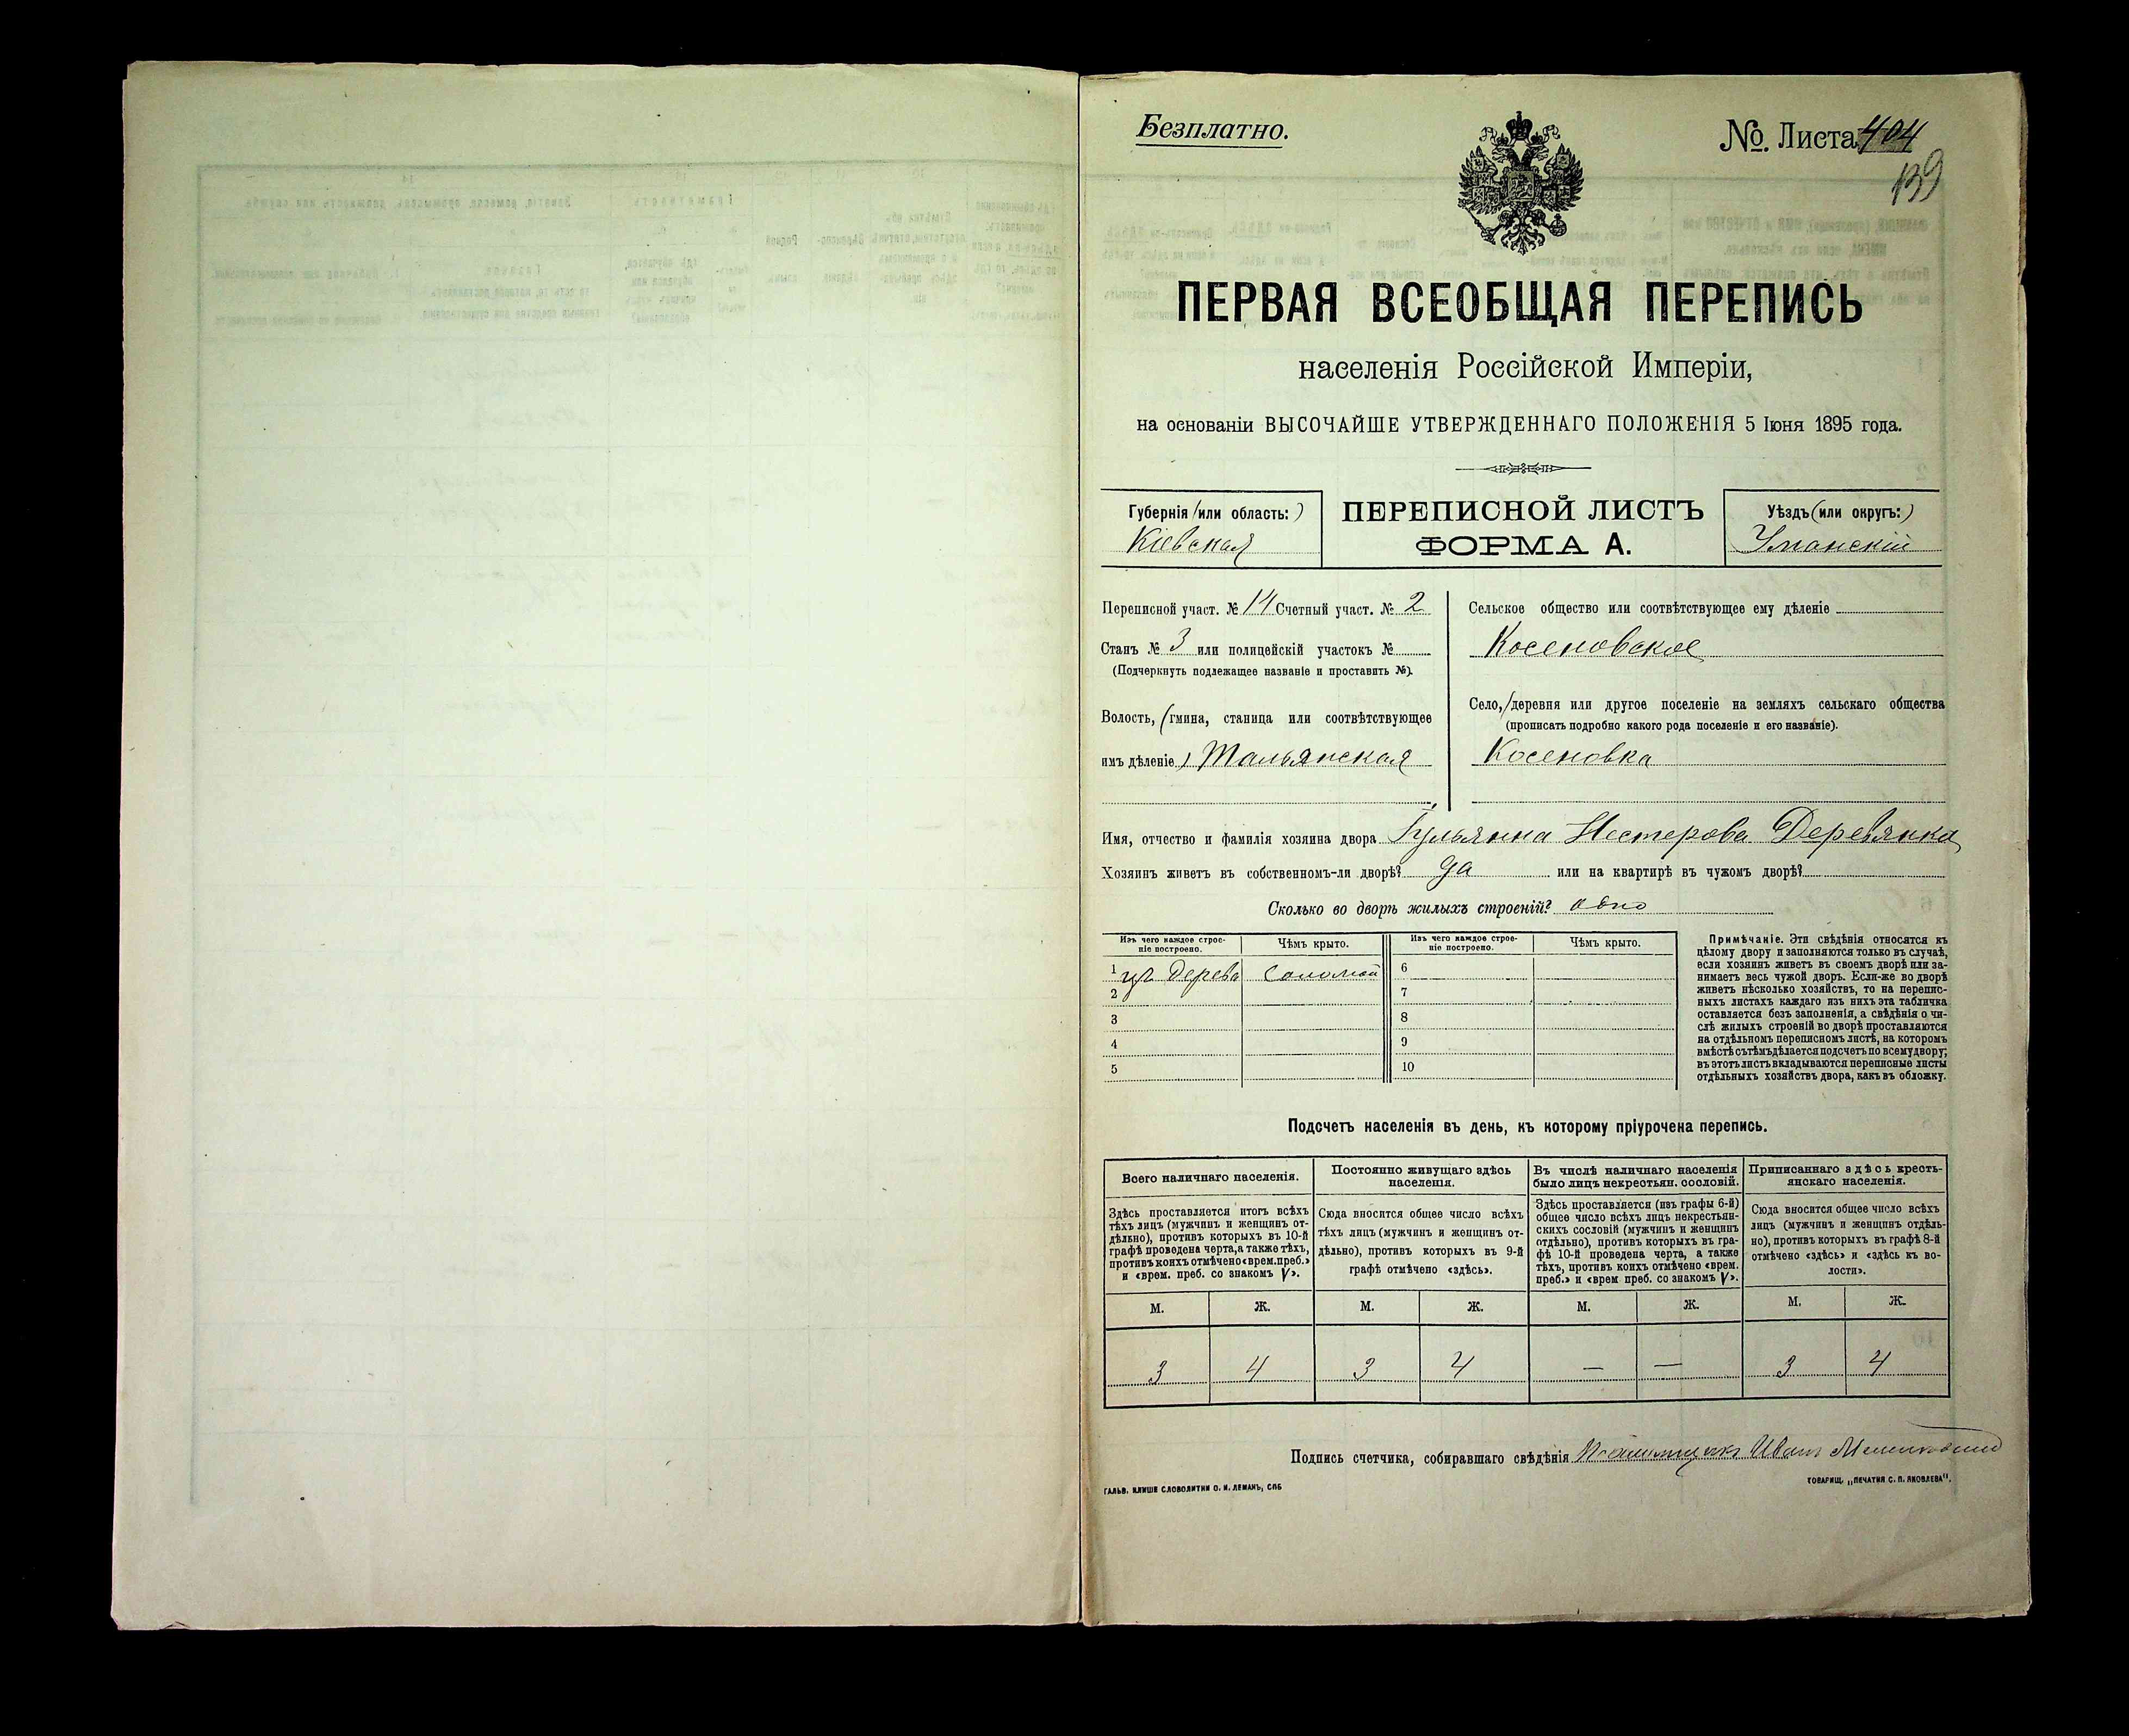 Безплатно.
№. Листа 404
139
ПЕРВАЯ ВСЕОБЩАЯ ПЕРЕПИСЬ
населенія Россійской Имперіи,
на основаніи ВЫСОЧАЙШЕ УТВЕРЖДЕННАГО ПОЛОЖЕНІЯ 5 Іюня 1895 года.
Губернія (или область:)
Кіевская
ПЕРЕПИСНОЙ ЛИСТЪ
ФОРМА А.
Уѣздъ (или округъ:)
Уманскій
Переписной участ. № 14 Счетный участ. № 2
Станъ № 3 или полицейскій участокъ №
(Подчеркнуть подлежащее названіе и проставить №).
Волость, (гмина, станица или соотвѣтствующее
имъ дѣленіе) Тальянская
Сельское общество или соотвѣтствующее ему дѣленіе
Косеновское
Село, деревня или другое поселеніе на земляхъ сельскаго общества
(прописать подробно какого рода поселеніе и его названіе).
Косеновка
Имя, отчество и фамилія хозяина двора Нестерова Деревянко
Хозяинъ живетъ въ собственномъ-ли дворѣ? да или на квартирѣ въ чужомъ дворѣ?
Сколько во дворѣ жилыхъ строеній? одно
Изъ чего каждое строе-
ніе построено.
Чѣмъ крыто.
Изъ чего каждое строе-
ніе построено.
Чѣмъ крыто.
1 изъ дерева соломой 6
2 7
3 8
4 9
5 10
Примѣчаніе. Эти свѣдѣнія относятся къ
цѣлому двору и заполняются только въ случаѣ,
если хозяинъ живетъ въ своемъ дворѣ или за-
нимаетъ весь чужой дворъ. Если-же во дворѣ
живетъ нѣсколько хозяйствъ, то на перепис-
ныхъ листахъ каждаго изъ нихъ эта табличка
оставляется безъ заполненія, а свѣдѣнія о чи-
слѣ жилыхъ строеній во дворѣ проставляются
на отдѣльномъ переписномъ листѣ, на которомъ
вмѣстѣ съ тѣмъ дѣлается подсчетъ по всему двору;
въ этотъ листъ вкладываются переписные листы
отдѣльныхъ хозяйствъ двора, какъ въ обложку.
Подсчетъ населенія въ день, къ которому пріурочена перепись.
Всего наличнаго населенія.
Здѣсь проставляется итогъ всѣхъ
тѣхъ лицъ (мужчинъ и женщинъ от-
дѣльно), противъ которыхъ въ 10-й
графѣ проведена черта, а также тѣхъ,
противъ коихъ отмѣчено «врем. преб.»
и «врем. преб. со знакомъ V».
Постоянно живущаго здѣсь
населенія.
Сюда вносится общее число всѣхъ
тѣхъ лицъ (мужчинъ и женщинъ от-
дѣльно), противъ которыхъ въ 9-й
графѣ отмѣчено «здѣсь».
Въ числѣ наличнаго населенія
было лицъ некрестьян. сословій.
Здѣсь проставляется (изъ графы 6-й)
общее число всѣхъ лицъ некрестьян-
скихъ сословій (мужчинъ и женщинъ
отдѣльно), противъ которыхъ въ гра-
фѣ 10-й проведена черта, а также
тѣхъ, противъ коихъ отмѣчено «врем.
преб.» и «врем преб. со знакомъ V».
Приписаннаго здѣсь кресть-
янскаго населенія.
Сюда вносится общее число всѣхъ
лицъ (мужчинъ и женщинъ отдѣль-
но), противъ которыхъ въ графѣ 8-й
отмѣчено «здѣсь» и «здѣсь къ во-
лости».
М. Ж. М. Ж. М. Ж. М. Ж.
3 4 3 4 — — 3 4
Подпись счетчика, собиравшаго свѣдѣнія Иванъ
ГАЛЬВ. КЛИШЕ СЛОВОЛИТНИ О. И. ЛЕМАНЪ, СПБ
ТОВАРИЩ. „ПЕЧАТНЯ С. П. ЯКОВЛЕВА".